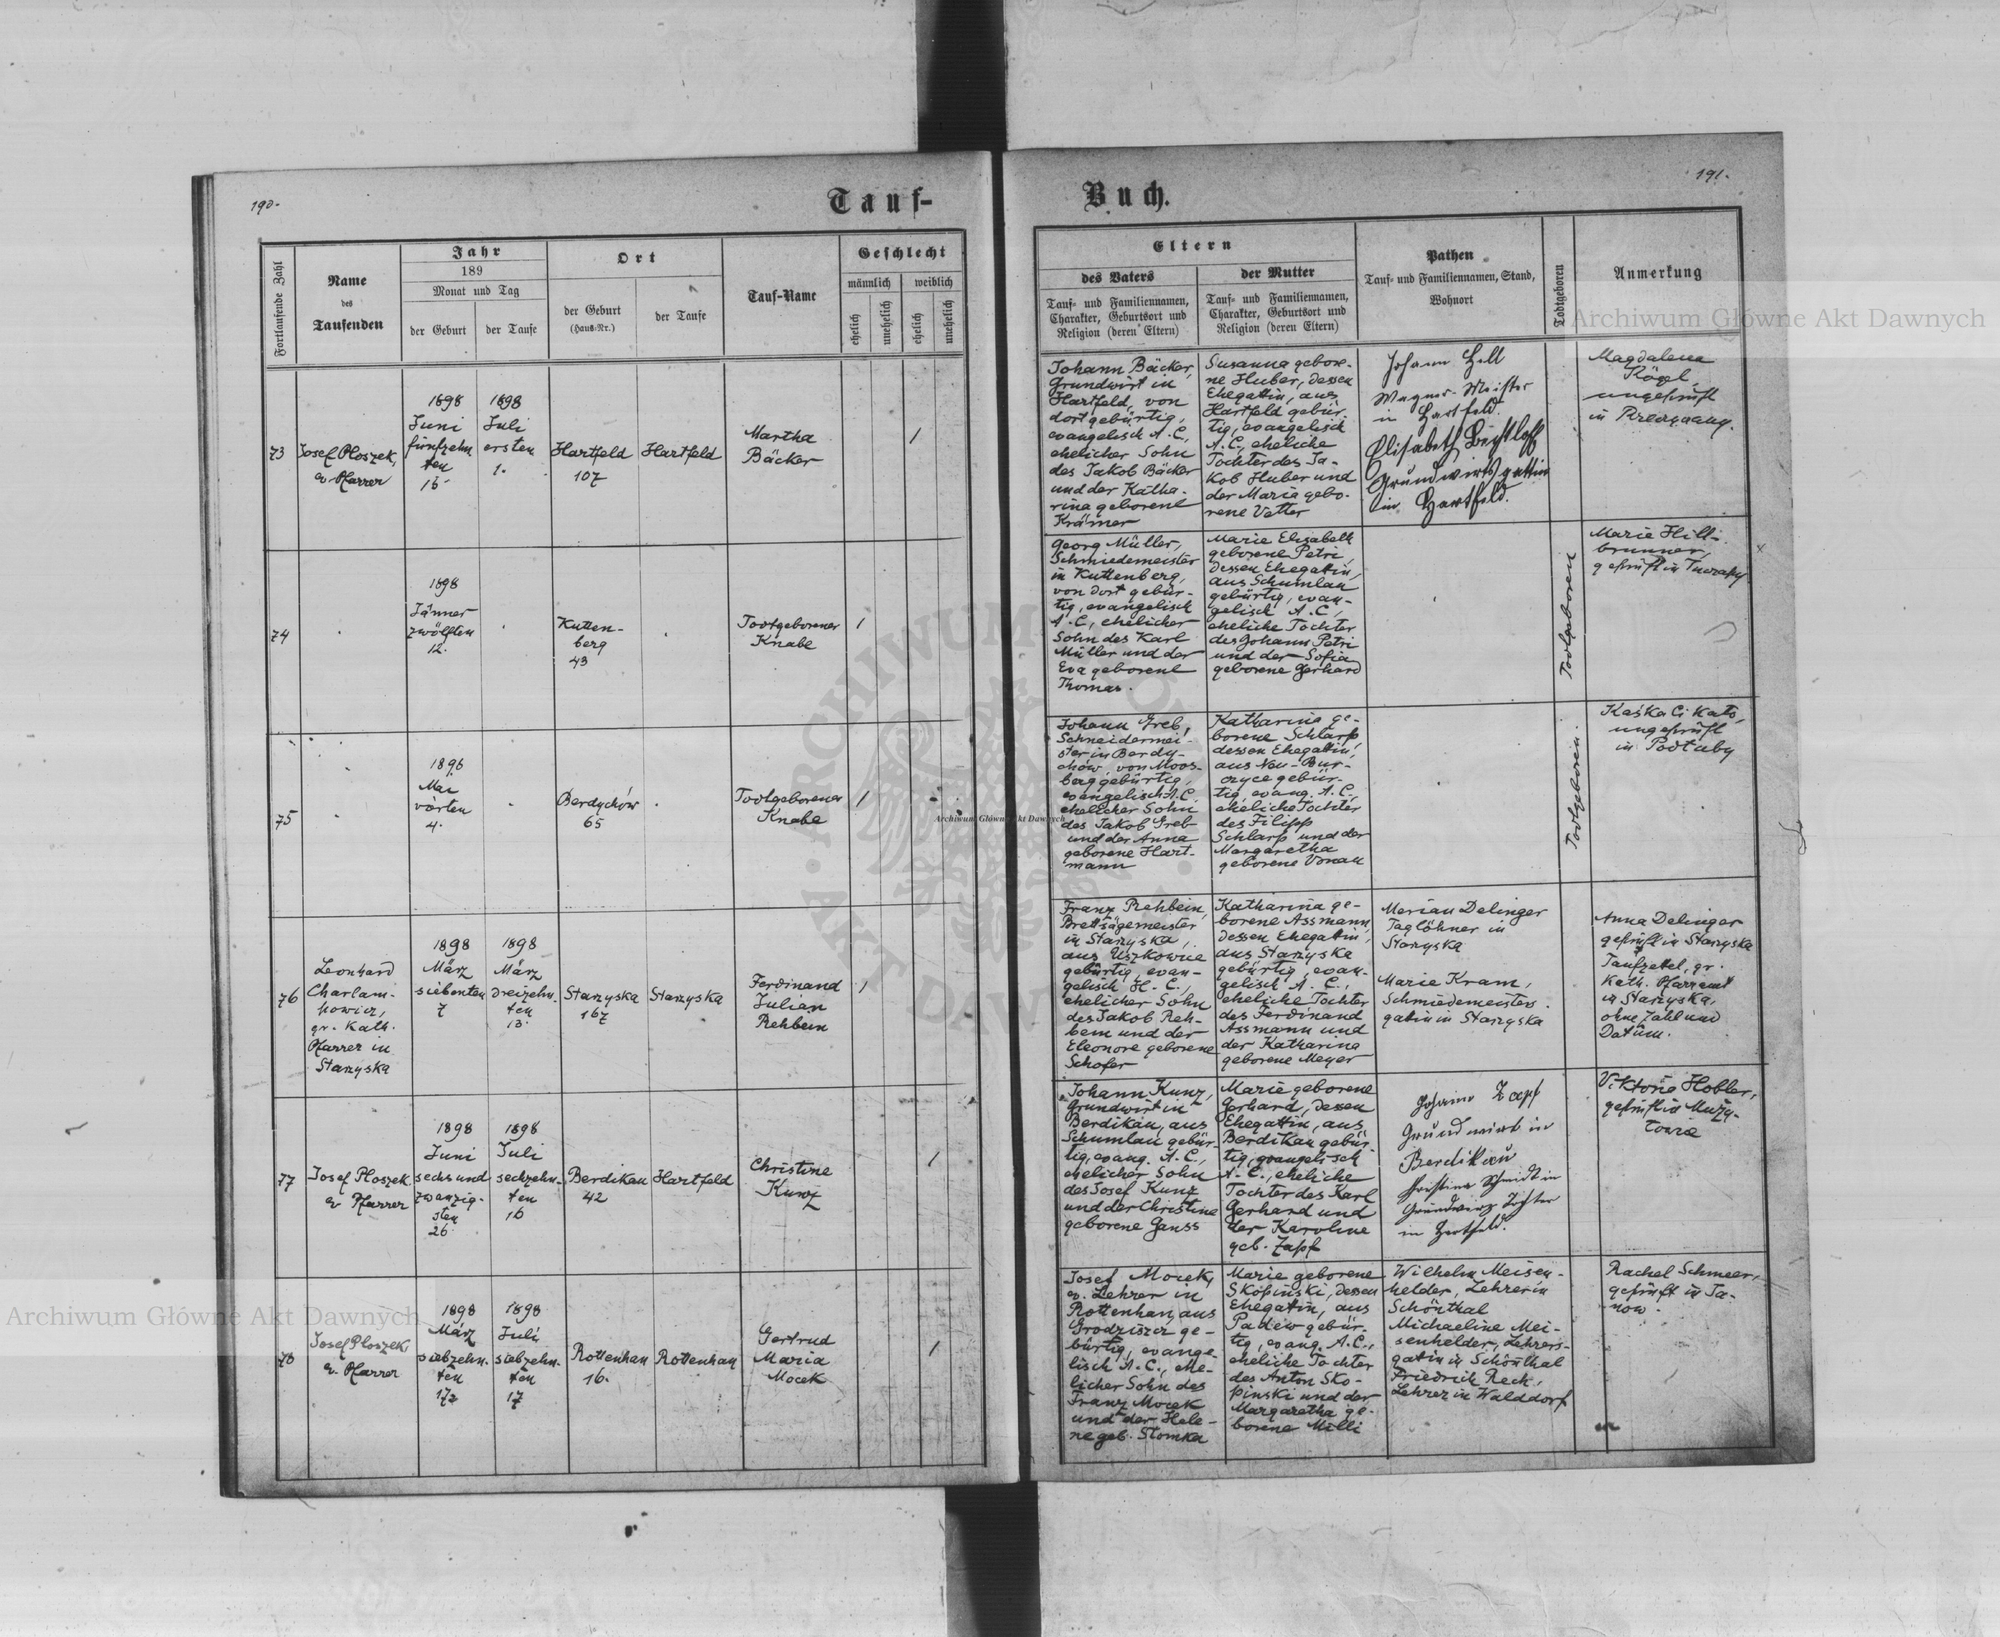 190.
Tauf-
Fortlaufende Zahl
Name
des
Taufenden
Jahr
189
Monat und Tag
der Geburt
der Taufe
Ort
der Geburt
(Haus-Nr.)
der Taufe
Tauf-Name
Geschlecht
männlich
weiblich
ehelich
unehelich
ehelich
unehelich
73
Josef Ploszek,
ev. Pfarrer
1898
Juni
fünfzehn
ten
15.
1898
Juli
ersten
1.
Hartfeld
107
Hartfeld
Martha
Bäcker
1
74
1898
Jänner
zwölften
12.
Kutten-
berg
43
Todtgeborener
Knabe
1
75
1898
Mai
vierten
4.
Berdychów
65
Todtgeborener
Knabe
1
76
Leonhard
Charlam-
powicz,
gr. kath.
Pfarrer in
Starzyska
1898
März
siebenten
7
1898
März
dreizehn-
ten
13.
Starzyska
167
Starzyska
Ferdinand
Julian
Rehbein
1
77
Josef Ploszek
ev Pfarrer
1898
Juni
sechsund
zwanzig-
sten
26.
1898
Juli
sechzehn-
ten
16
Berdikau
42
Hartfeld
Christine
Kunz
1
78
Josef Ploszek,
ev. Pfarrer
1898
März
siebzehn-
ten
17
1898
Juli
siebzehn-
ten
17
Rottenhan
16.
Rottenhan
Gertrud
Maria
Mocek
1
191.
Buch.
Eltern
des Vaters
Tauf- und Familiennamen,
Charakter, Geburtsort und
Religion (deren Eltern)
der Mutter
Tauf- und Familiennamen,
Charakter, Geburtsort und
Religion (deren Eltern)
Pathen
Tauf- und Familiennamen, Stand,
Wohnort
Todtgeboren
Anmerkung
Johann Bäcker,
Grundwirt in
Hartfeld, von
dort gebürtig,
evangelisch A.C,
ehelicher Sohn
des Jakob Bäcker
und der Katha-
rina geborene
Krämer
Susanna gebore-
ne Huber, dessen
Ehegattin, aus
Hartfeld gebür-
tig, evangelisch
A.C, eheliche
Tochter des Ja-
kob Huber und
der Maria gebo-
rene Vetter
Johann Hell
Wagner-Meister
in Hartfeld.
Elisabeth Bechtloff
Grundwirtsgattin
in Hartfeld.
Magdalena
Kögel,
ungeprüft
in
Georg Müller,
Schmiedemeister
in Kuttenberg,
von dort gebür-
tig, evangelisch
A.C, ehelicher
Sohn des Karl
Müller und der
Eva geborene
Thomas.
Marie Elisabeth
geborene Petri,
dessen Ehegattin,
aus Schumlau
gebürtig, evan-
gelisch A.C,
eheliche Tochter
des Johann Petri
und der Sofia
geborene Gerhard
Todtgeboren
Marie Hill-
brunner,
geprüft in
Johann Greb,
Schneidermei-
ster in Berdy-
chów, von Moos-
berg gebürtig,
evangelisch A.C,
ehelicher Sohn
des Jakob Greb
und der Anna
geborene Hart-
mann
Katharina ge-
borene Schlarp
dessen Ehegattin,
aus Neu-Bur-
czyce gebür-
tig, evang. A.C.,
eheliche Tochter
des Filipp
Schlarp und der
Margaretha
geborene Vonau
Todtgeboren
Kaśka
ungeprüft
in Podłuby
Franz Rehbein,
Brettsägemeister
in Starzyska,
aus Uszkowice
gebürtig, evan-
gelisch H.C.,
ehelicher Sohn
des Jakob Reh-
bein und der
Eleonore geborene
Schofer
Katharina ge-
borene Assmann,
dessen Ehegattin,
aus Starzyska
gebürtig, evan-
gelisch A.C,
eheliche Tochter
des Ferdinand
Assmann und
der Katharina
geborene Meyer
Merian Delinger
Taglöhner in
Starzyska
Marie Kram,
Schmiedemeisters-
gattin in Starzyska
Anna Delinger
geprüft in Starzyska
Taufzettel, gr.
kath. Pfarramt
in Starzyska,
ohne Zahl und
Datum.
Johann Kunz,
Grundwirt in
Berdikau, aus
Schumlau gebür-
tig, evang. A.C.,
ehelicher Sohn
des Josef Kunz
und der Christine
geborene Ganss
Marie geborene
Gerhard, dessen
Ehegattin, aus
Berdikau gebür
tig, evangelisch
A.C., eheliche
Tochter des Karl
Gerhard und
der Karoline
geb. Zapf
Johann Zapf
Grundwirt in
Berdikau
Christina Schmidt in
Grundwirts Tochter
in Hartfeld.
Viktoria Hobler,
geprüft in Muży-
łowice
Josef Mocek,
ev. Lehrer in
Rottenhan, aus
Grodziszcz ge-
bürtig, evange-
lisch A.C., ehe-
licher Sohn des
Franz Mocek
und der Hele-
ne geb. Słomka
Marie geborene
Skopinski, dessen
Ehegattin, aus
Padew gebür-
tig, evang. A.C.,
eheliche Tochter
des Anton Sko-
pinski und der
Margaretha ge-
borene Milli
Wilhelm Meisen-
helder, Lehrer in
Schönthal
Michaeline Mei-
senhelder, Lehrers-
gattin in Schönthal
Friedrich Reck,
Lehrer in Walddorf
Rachel Schmeer,
geprüft in Ja-
now.
Archiwum Główne Akt Dawnych
Archiwum Główne Akt Dawnych
Archiwum Główne Akt Dawnych